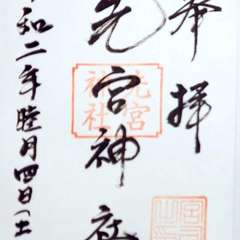 奉拝
先宮神社
和二年睦月四日(土
先宮
神社